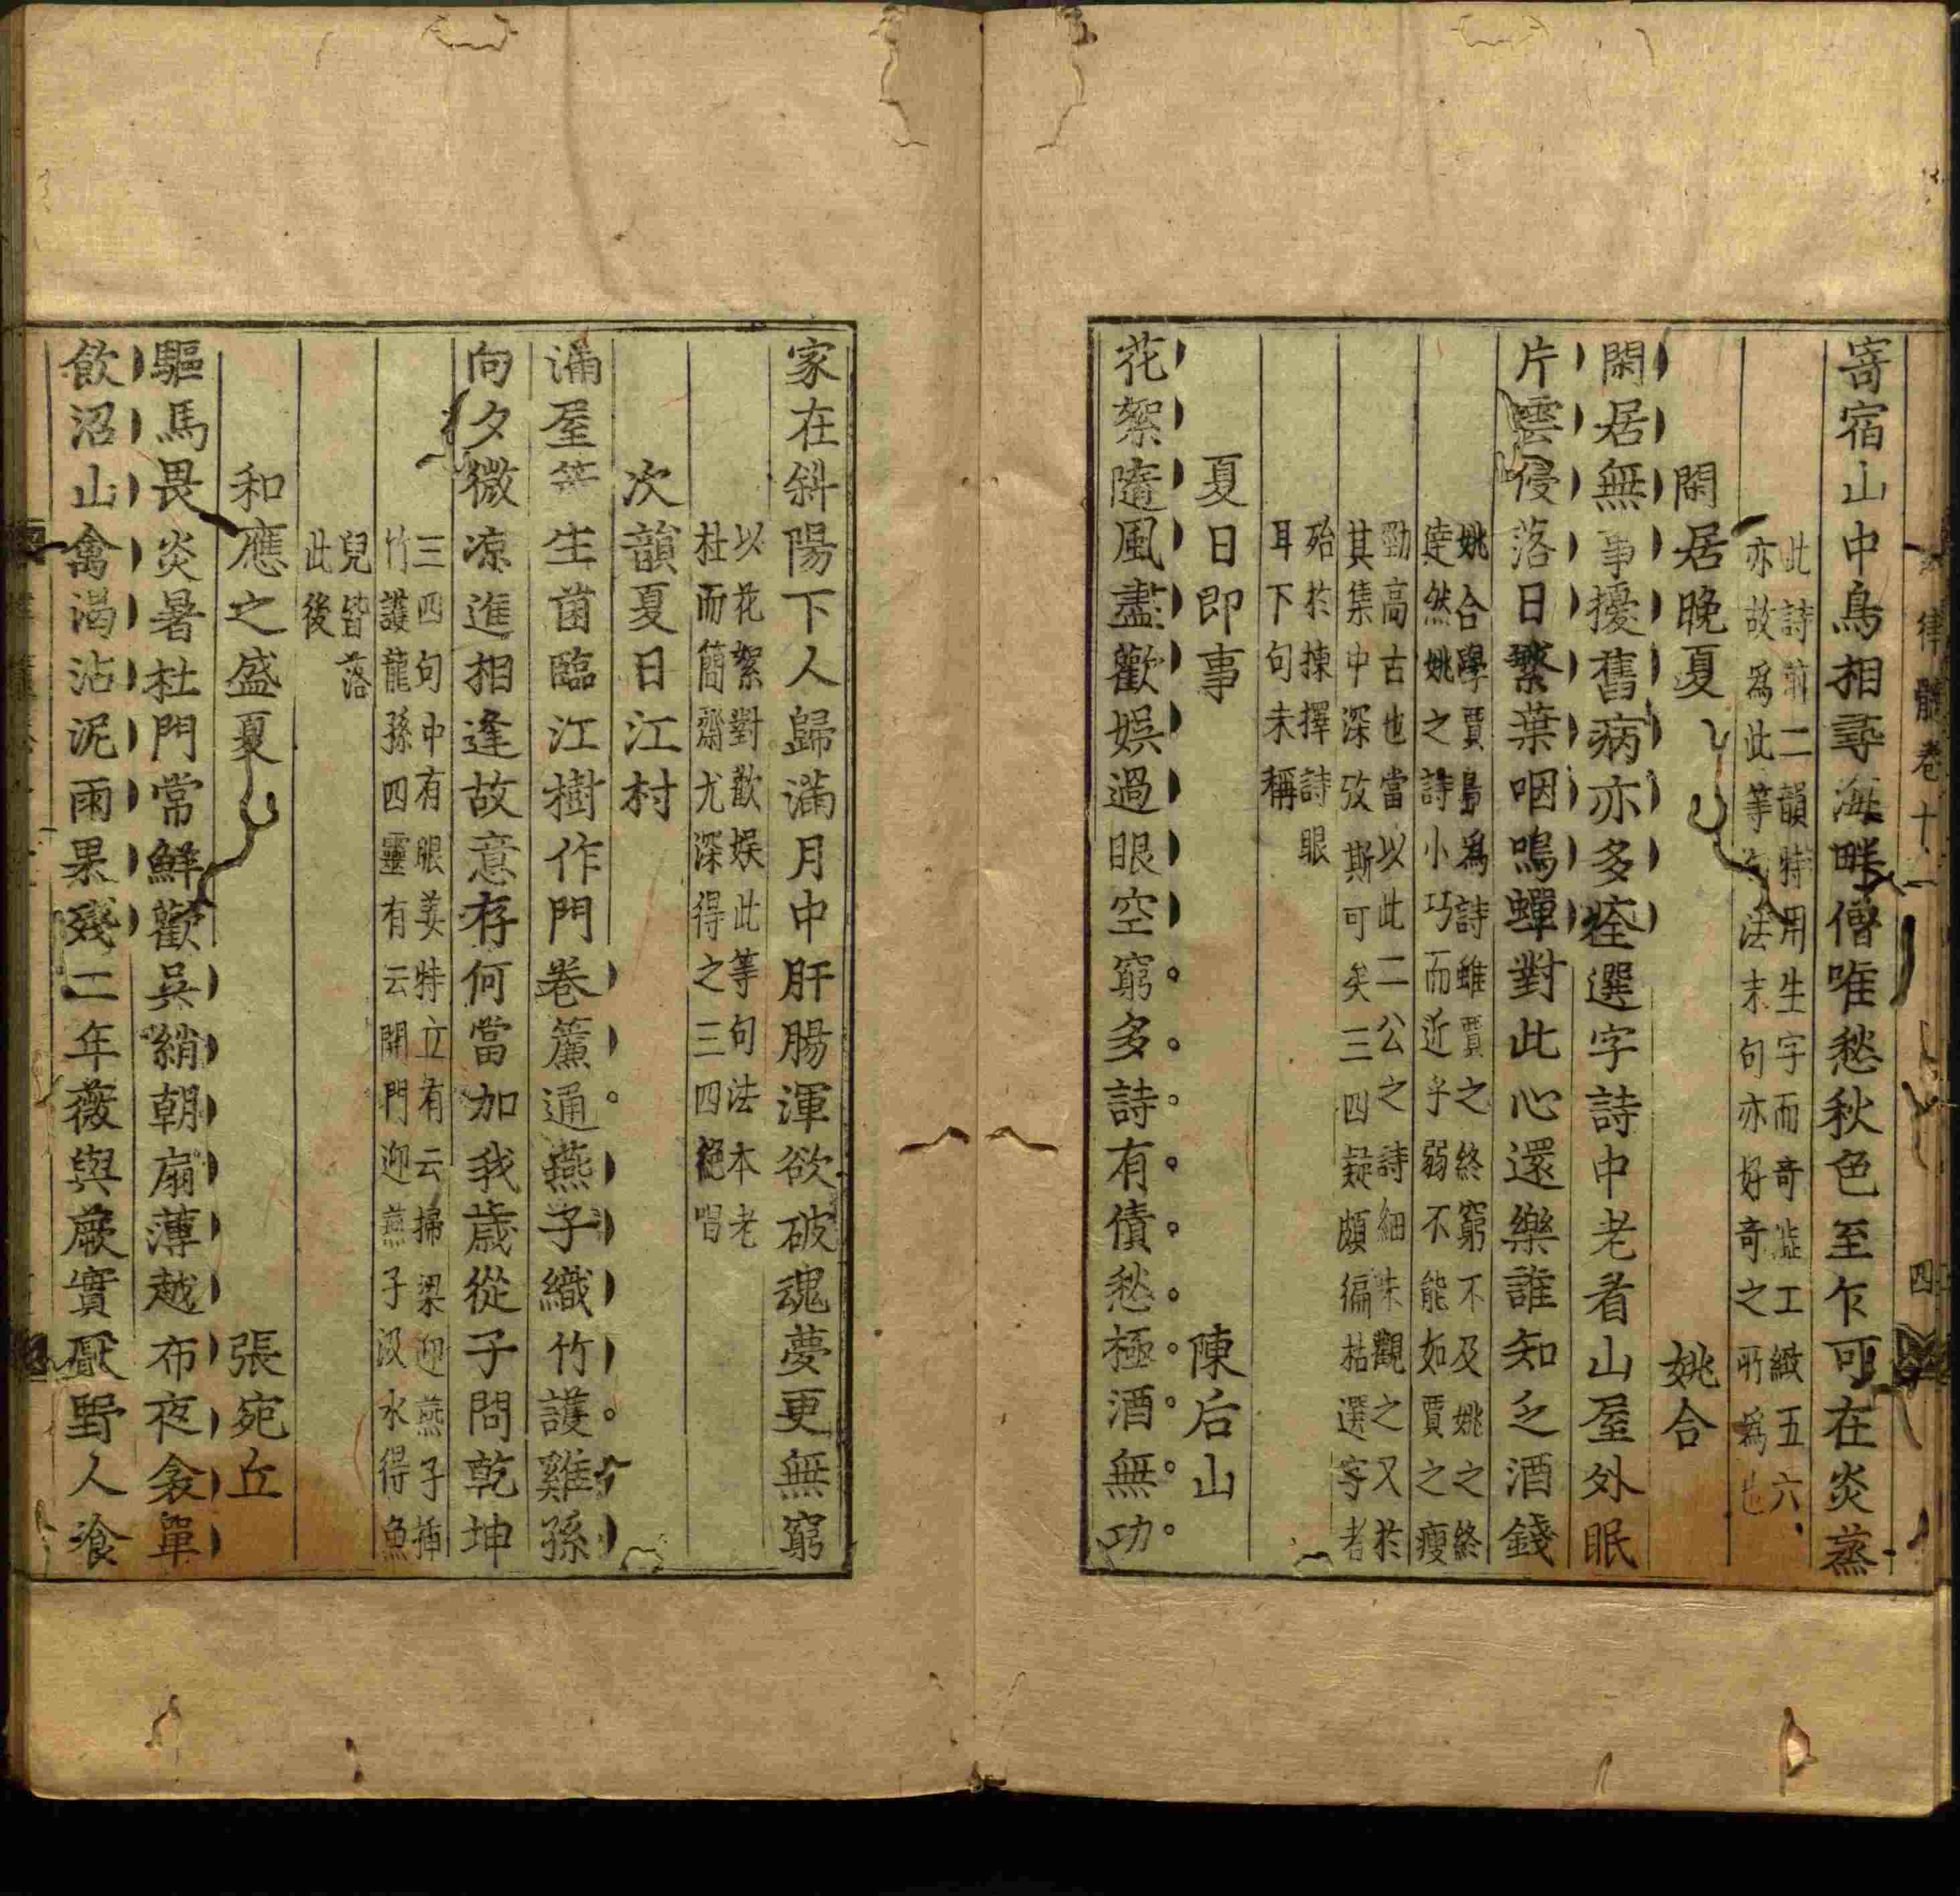 律髓卷十一
四
寄宿山中鳥相尋海畔僧唯愁秋色至乍可在炎蒸
此詩前二韻特用生字而奇澁工緻五六
亦故爲此等句法末句亦好奇之所爲也
閑居晚夏
姚合
閑居無事擾舊病亦多痊選字詩中老看山屋外眠
片雲侵落日繁葉咽鳴蟬對此心還樂誰知乏酒錢
姚合學賈島爲詩雖賈之終窮不及姚之終
達然姚之詩小巧而近乎弱不能如賈之瘦
勁高古也當以此二公之詩細味觀之又於
其集中深攷斯可矣三四疑頗偏枯選字者
殆於揀擇詩眼
耳下句未稱
夏日即事
陳后山
花絮隨風盡歡娛過眼空窮多詩有債愁極酒無功
家在斜陽下人歸滿月中肝腸渾欲破魂夢更無窮
以花絮對歡娛此等句法本老
杜而簡齋尤深得之三四絕唱
次韻夏日江村
滿屋筍生菌臨江樹作門卷簾通燕子織竹護雞孫
向夕微凉進相逢故意存何當加我歳從子問乾坤
三四句中有眼姜特立有云掃梁迎燕子插
竹護龍孫四靈有云開門迎燕子汲水得魚
兒皆落
此後
和應之盛夏
張宛丘
驅馬畏炎暑杜門常鮮歡吳綃朝扇薄越布夜衾單
飲沼山禽渴沾泥雨果殘二年薇與蕨實厭野人飡